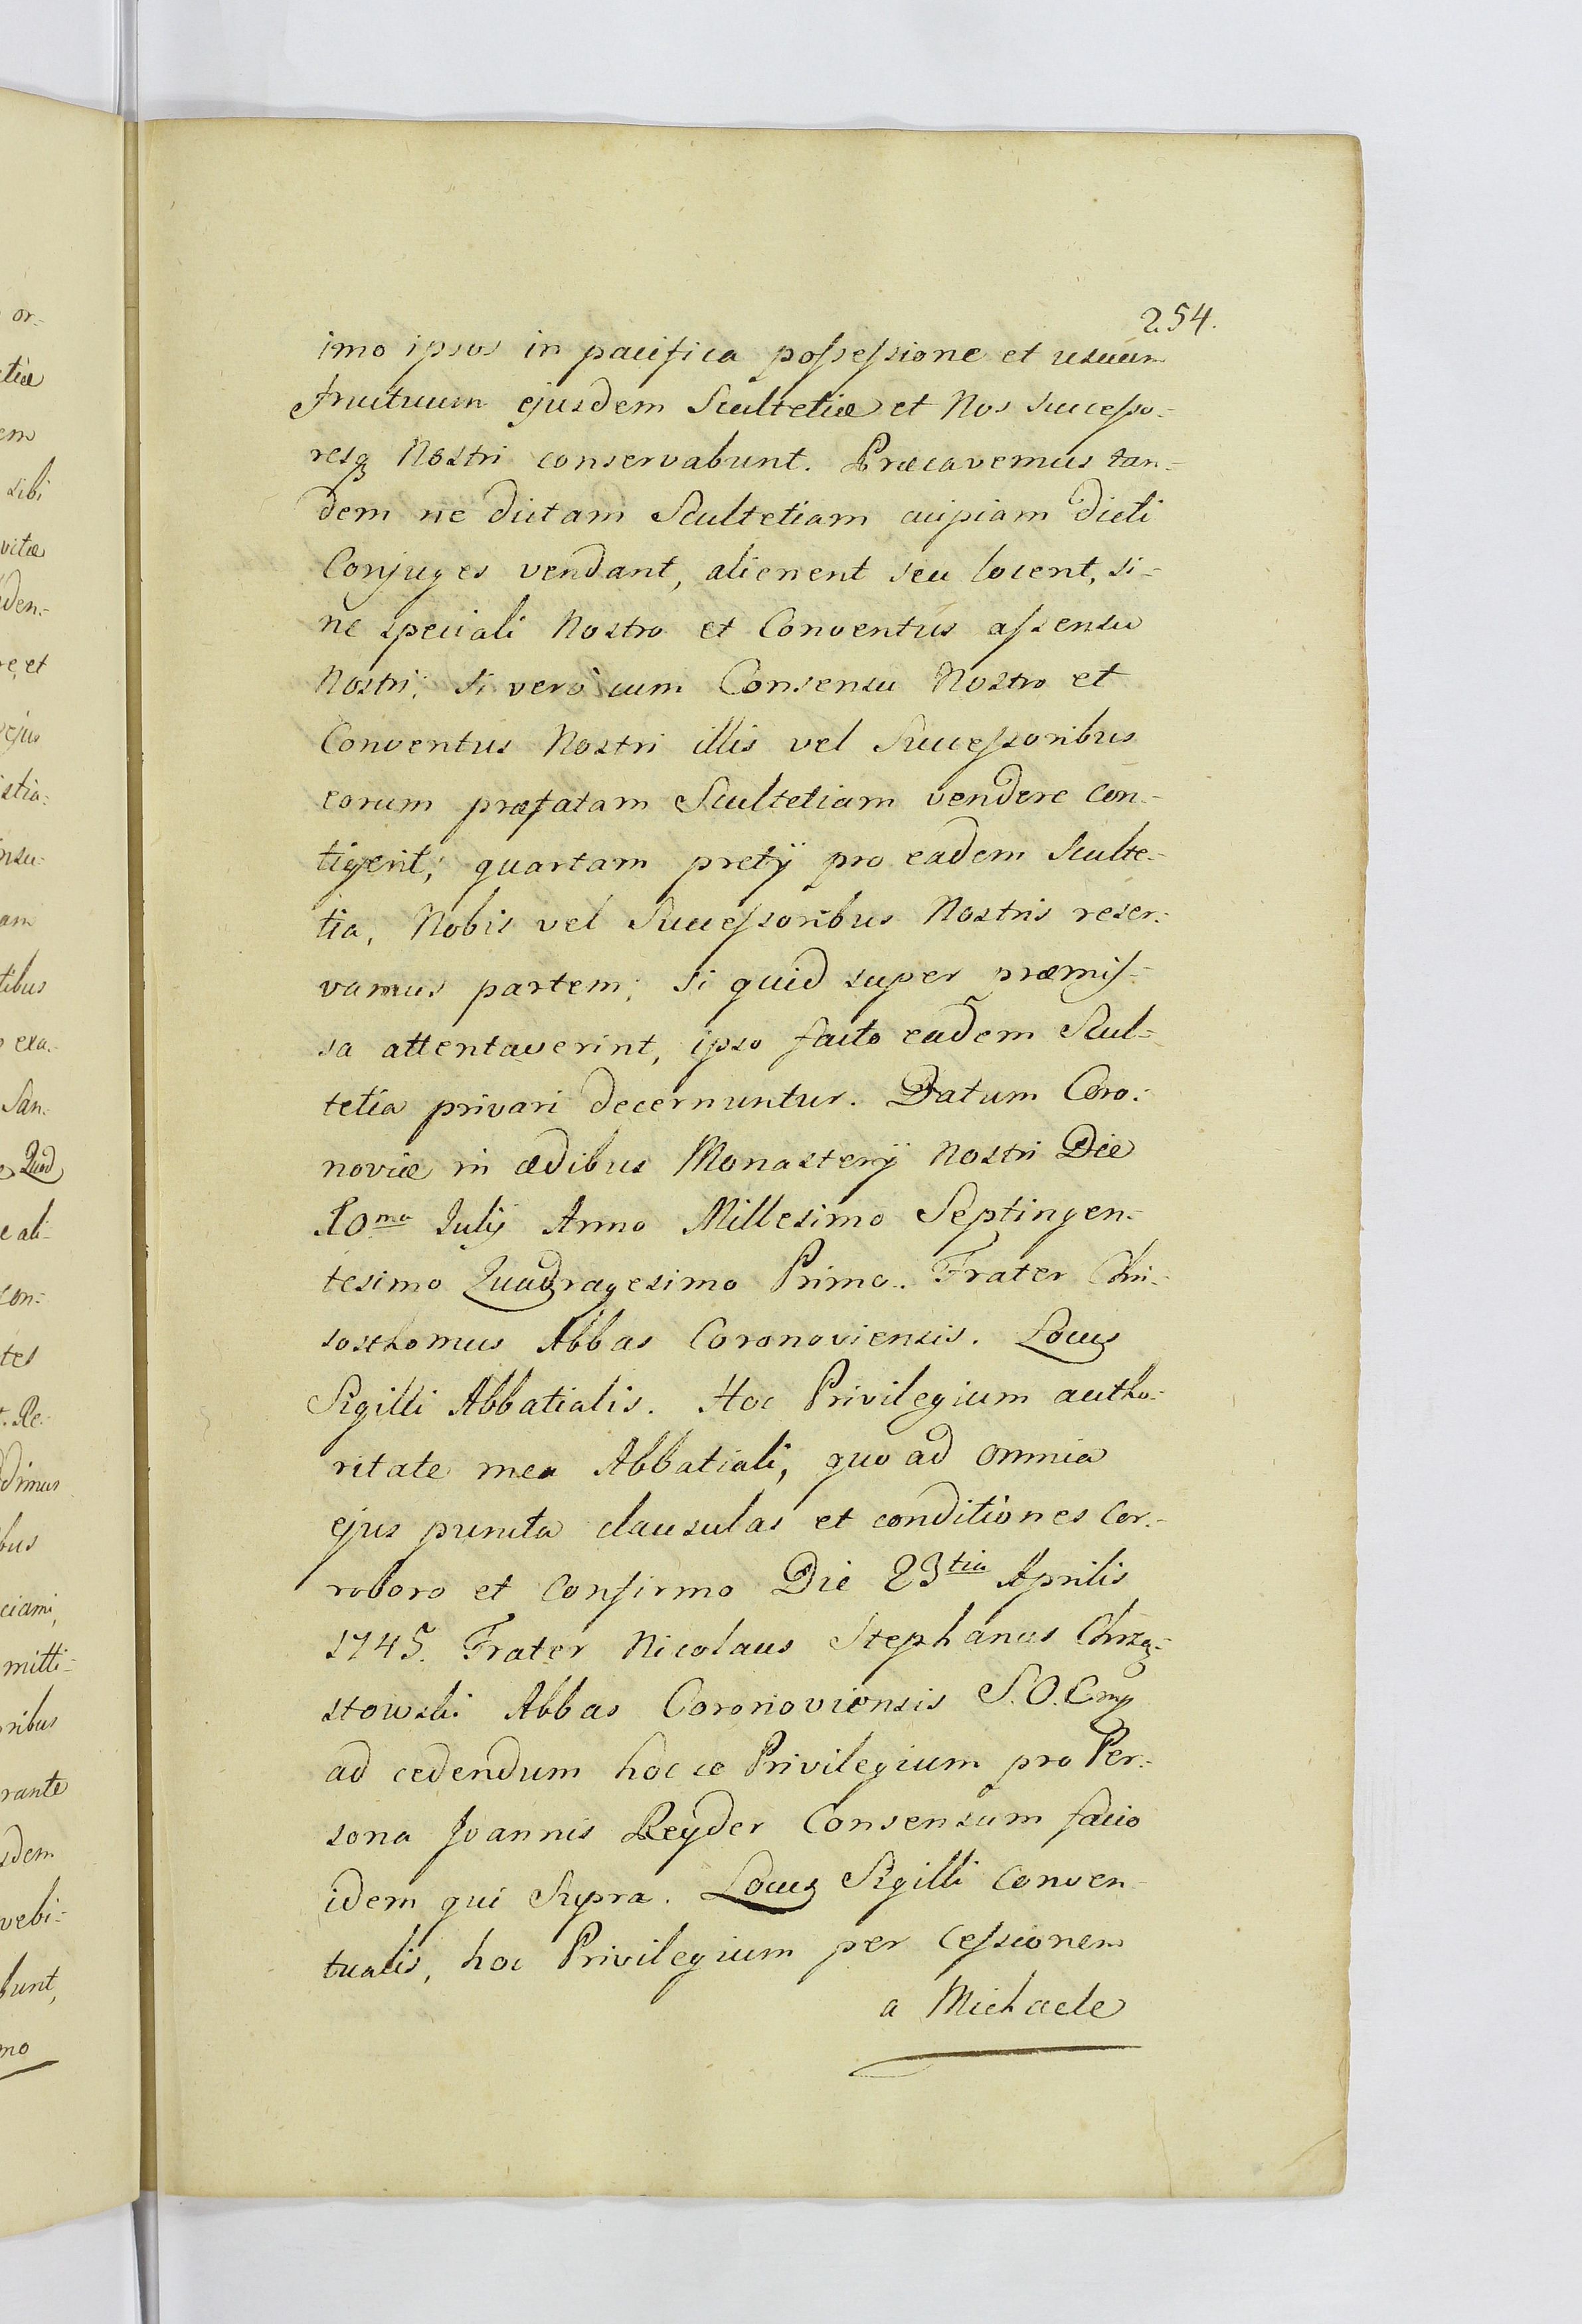 254.
imo ipsos in pacifica possessione et usuum
fructuum ejusdem Scultetiæ et Nos Successo-
resq Nostri conservabunt. Præcavemus tan-
dem ne dictam Scultetiam cuipiam dicti
Conjuges vendant, alienent seu locent, si-
ne speciali Nostro et Conventûs assensu
Nostri; si verò cum Consensu Nostro et
Conventus Nostri illis vel Successoribus
eorum præfatam Scultetiam vendere con-
tigerit; quartam pretij pro eadem Sculte-
tia, Nobis vel Successoribus Nostris reser-
vamus partem; si quid super præmis-
sa attentaverint, ipso facto eadem Scul-
tetia privari decernuntur. Datum Coro-
noviæ in ædibus Monasterij Nostri Die
10ma Julij Anno Millesimo Septingen-
tesimo Quadragesimo Primo. Frater Chri-
sosthomus Abbas Coronoviensis. Locus
Sigilli Abbatialis. Hoc Privilegium autho-
ritate mea Abbatiali, quo ad omnia
ejus puncta clausulas et conditiones cor-
roboro et confirmo Die 23tia Aprilis
1745. Frater Nicolaus Stephanus Chrzą-
stowski Abbas Coronoviensis S.O.
ad cedendum hocce Privilegium pro Per-
sona Joannis Reyder Consensum facio
idem qui Supra. Locus Sigilli Conven-
tualis, hoc Privilegium per Cessionem
a Michaele
or-
tiæ
em
sibi
vitæ
den-
re, et
ejus
stia-
nsu-
am
tibus
exa-
San-
Quod
e ali-
con-
tes
t. Re-
dimus
bus
ciami,
mitti-
ribus
rante
sdem
vebi-
bunt,
mo